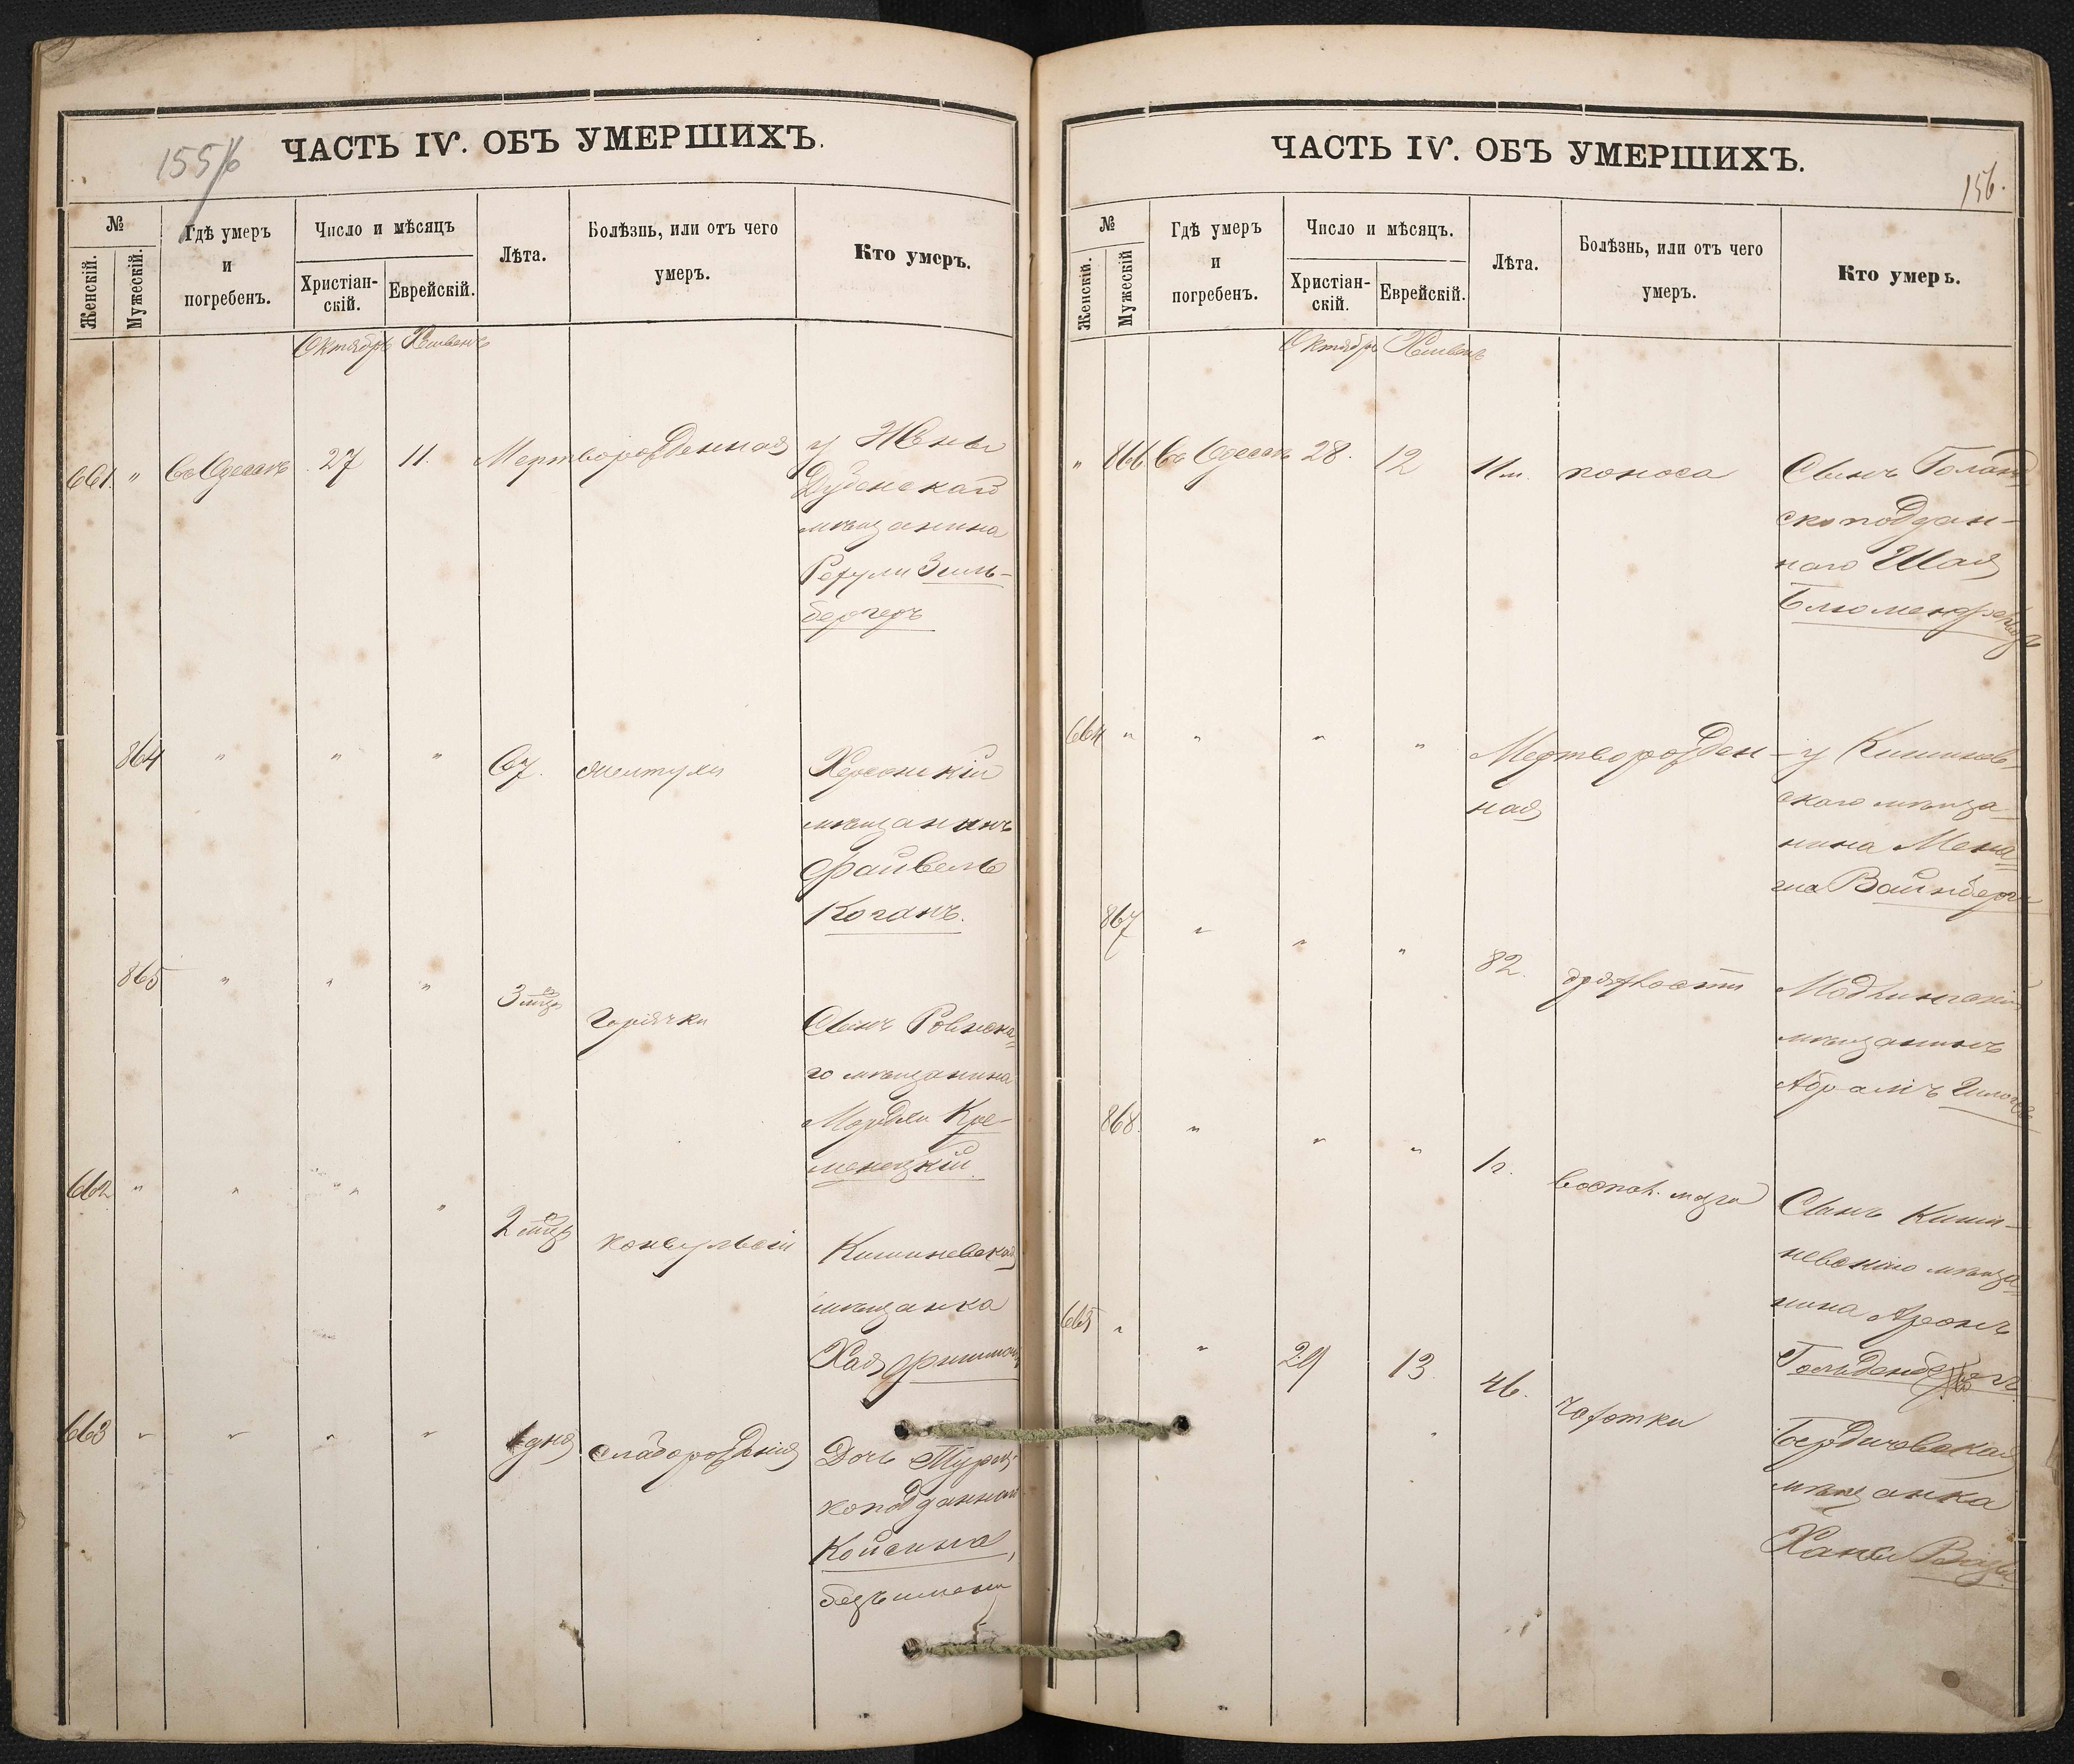 155/6
ЧАСТЬ IV. ОБЪ УМЕРШИХЪ.
№
Женскій.
Мужескій.
Гдѣ умеръ
и
погребенъ.
Число и мѣсяцъ
Христіан-
скій.
Еврейскій.
Лѣта.
Болѣзнь, или отъ чего
умеръ.
Кто умеръ.
Октябрь Хешвенъ
661. " Въ Одессѣ 27 11. Мертворожденная у Жены
Дубенскаго
мѣщанина
Зиль-
бергеръ
864 " " " 67. желтухи Херсонскій
мѣщанинъ
Файвель
Коганъ.
865 " " " 3 мѣц. Горячки Сынъ Ровенска-
го мѣщанина
Мордки Кре-
менецкій.
662 " " " " 2 мѣц. конвульсіи Кишиневская
мѣщанка
Хая
663 " " " " 1 дня слаборожденія Дочь Турец-
коподданнаго
Койсина,
безъ имени
ЧАСТЬ IV. ОБЪ УМЕРШИХЪ.
156.
№
Женскій.
Мужескій
Гдѣ умеръ
и
погребенъ.
Число и мѣсяцъ.
Христіан-
скій.
Еврейскій.
Лѣта.
Болѣзнь, или отъ чего
умеръ.
Кто умеръ.
Октябрь Хешвенъ
" 866 Въ Одессѣ 28. 12 11 м. поноса Сынъ Голанд
скоподдан-
наго Шая
Блюменфельдъ
664 " " " " Мертворожден- у Кишинев-
ная скаго мѣща-
нина Мена-
ша Вайнберга
867 " " " 82. дряхлости
мѣщанинъ
Абрамъ
868. " " " 1 г. воспал. мозга Сынъ Киши-
невскаго мѣща-
нина Аронъ
Гольденбергъ
665 " " 29 13 46. чахотки Бердичевская
мѣщанка
Хана